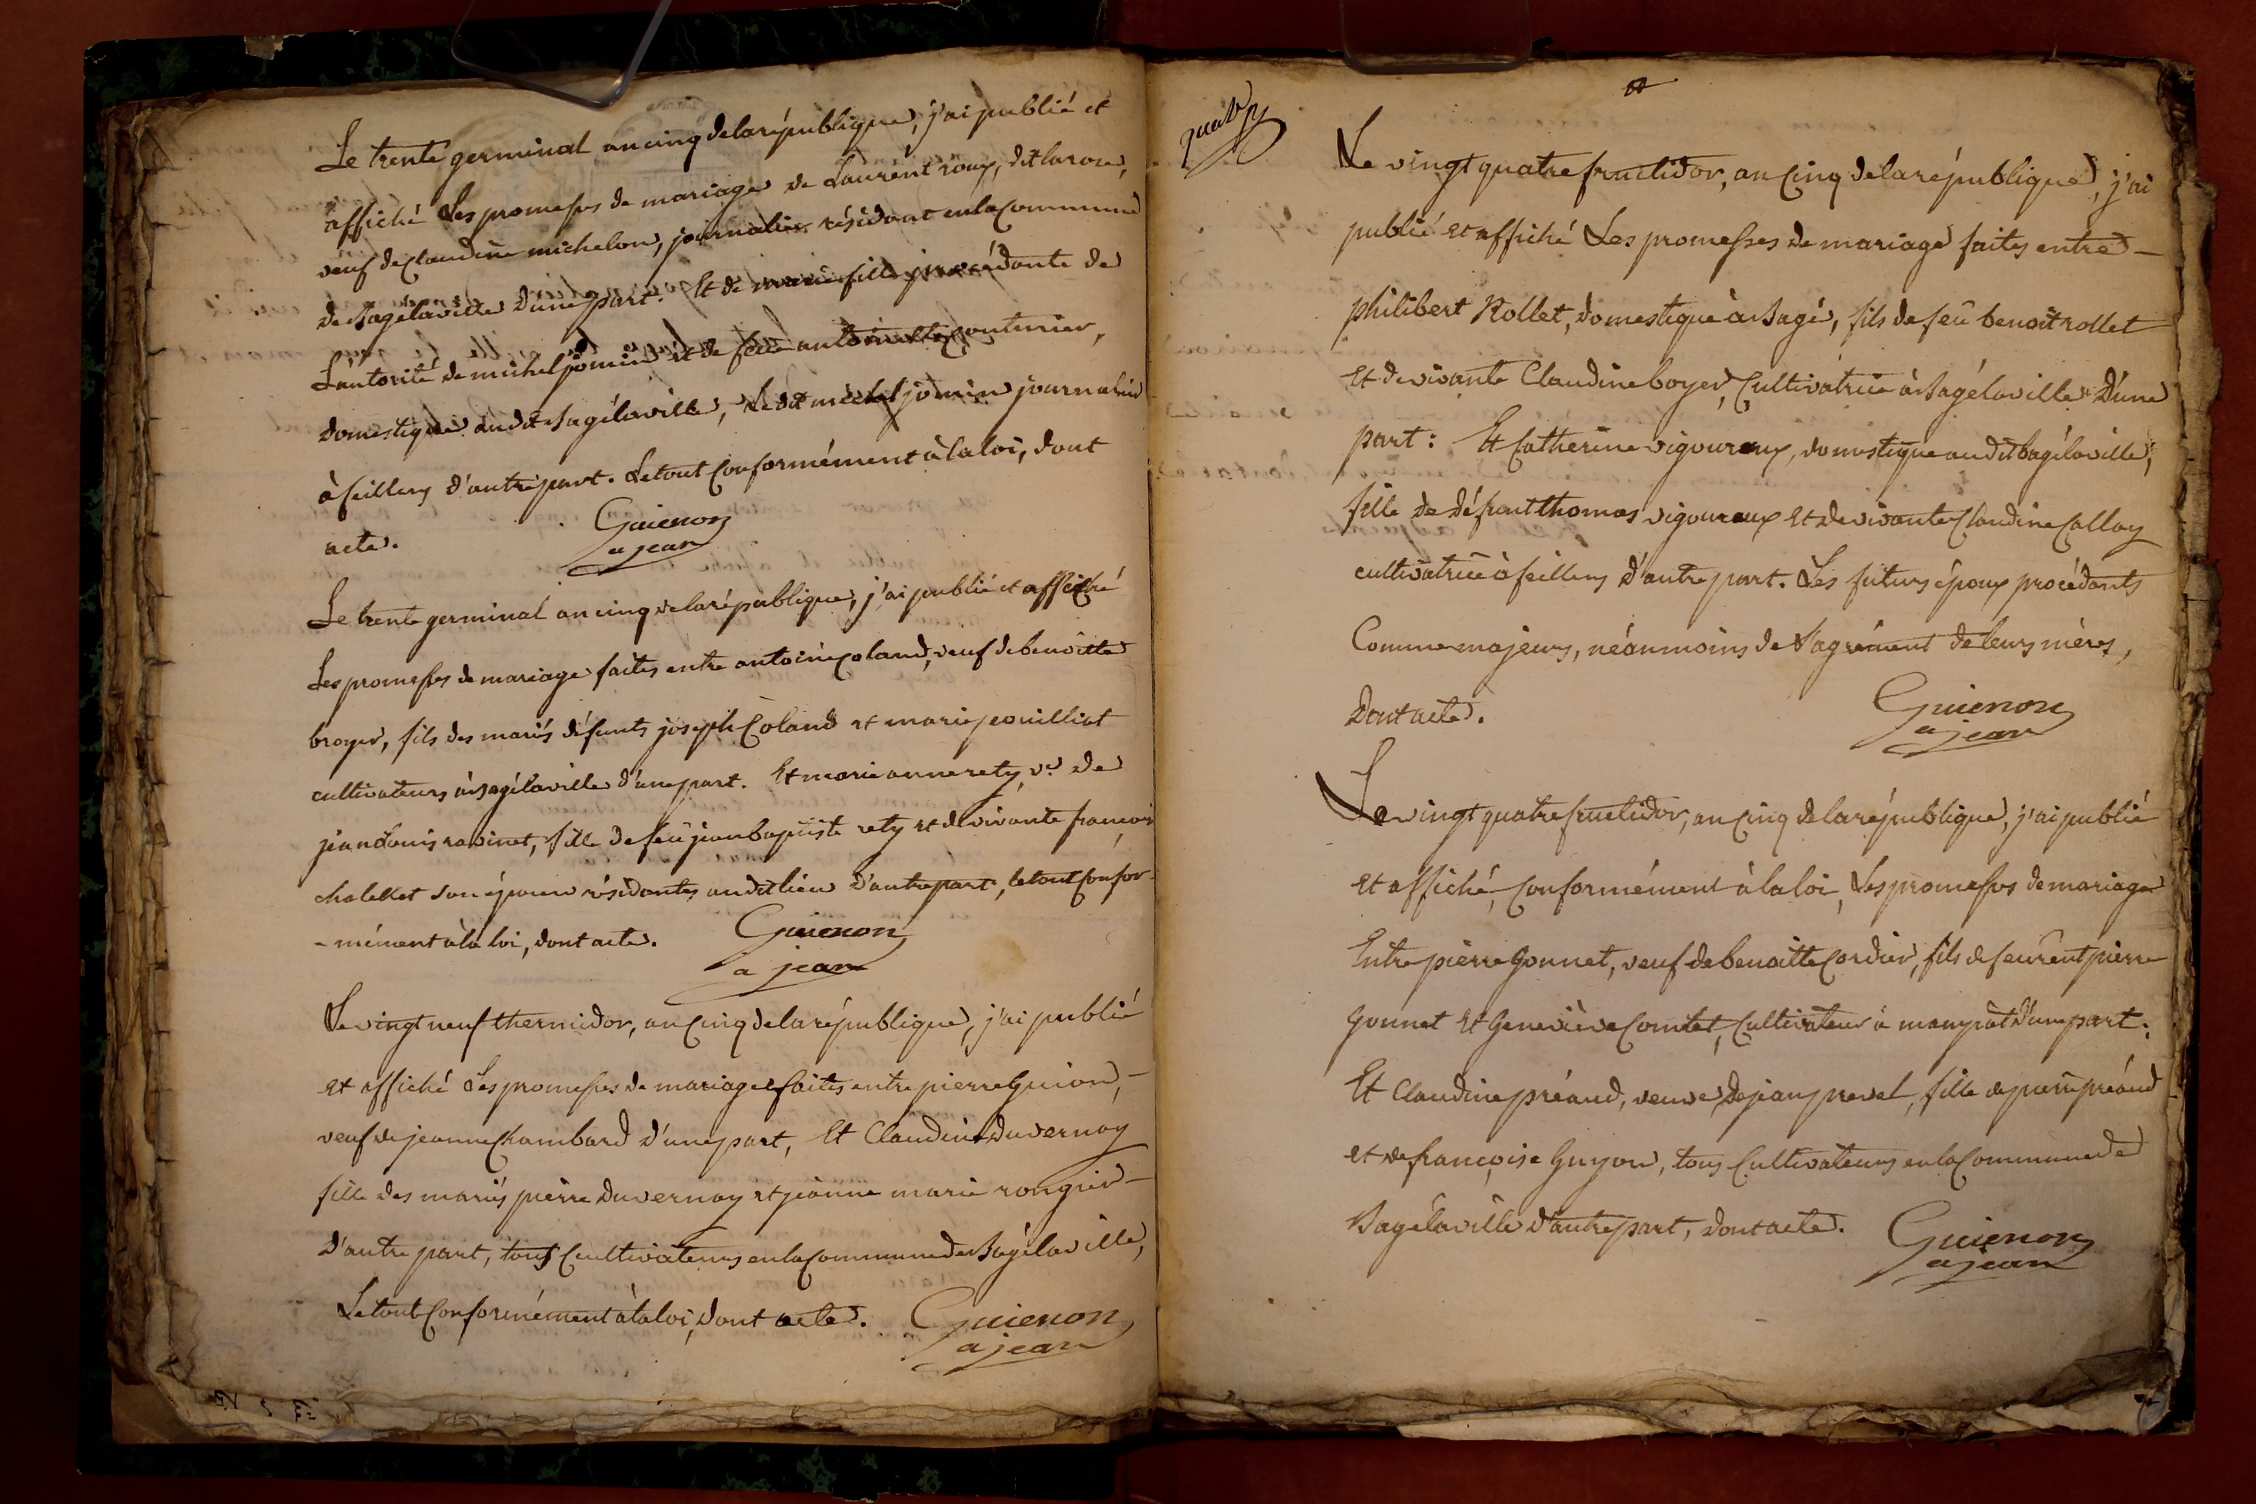 Le trente germinal an cinq de la république, j'ai publié et
affiché Les promesses de mariage de Laurent roux, dit larose,
veuf de Claudine michelon, journalier résidant en la Commune
de Bagélaville d'une part. Et de marie fille procédante de
L'autorité de michel jomin et de feüe antoinette Couturier,
domestique audit Bagélaville, Ledit michel jomin journalier
à feillens d'autre part. Le tout Conformément à la loi, dont
acte.
Guienon
a jean
Le trente germinal an cinq de la république, j'ai publié et affiché
Les promesses de mariage faites entre antoine Coland, veuf de benoitte
broyer, fils des mariés défunts joseph Coland et marie
cultivateurs à Bagélaville d'une part. Et marie anne rety, ve de
jean Louis ravinet, fille de feü jean baptiste rety et de vivante françoise
son épouse résidantes audit lieu D'autre part, le tout Confor-
-mément à la loi, dont acte.
Guienon
a jean
Le vingt neuf thermidor, an Cinq de la république, j'ai publié
et affiché Les promesses de mariage faites entre pierre Guion, -
veuf de jeanne Chambard d'une part, Et Claudine Duvernay
fille des mariés pierre Duvernay et jeanne marie rongier -
D'autre part, tous Cultivateurs en la Commune de Bagélaville,
Le tout Conformément à la loi, Dont acte.
Guienon
a jean
Le vingt quatre fructidor, an Cinq de la république, j'ai
publié et affiché Les promesses de mariage faites entre -
philibert Rollet, domestique à Bagé, fils de feü benoit rollet
et de vivante Claudine boyer, Cultivatrice à Bagélaville D'une
part : Et Catherine vigoureux, domestique audit bagélaville,
fille de défunt thomas vigoureux et de vivante Claudine Callay
cultivatrice à feillens D'autre part. Les futurs époux procédants
Comme majeurs, néanmoins de L'agrément de leurs mères,
Dont acte.
Guienon
a jean
Le vingt quatre fructidor, an Cinq de la république, j'ai publié
et affiché, Conformément à la loi, Les promesses de mariage
Entre pierre Gonnet, veuf de benoitte Cordier, fils de pierre
Gonnet et Geneviève Comtet, Cultivateur à d'une part :
Et Claudine préaud, veuve de jean prevel, fille de pierre préaud
et de françoise Guyon, tous Cultivateurs en la Commune de
Bagélaville d'autre part, Dont acte.
Guienon
a jean